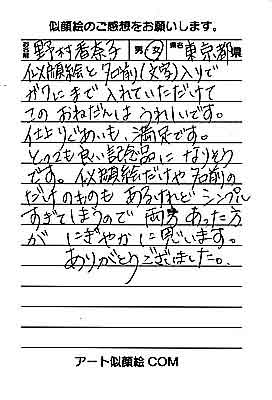 似顔絵のご感想をお願いします。
お名前 野村香奈子 男・女 県名 東京都 県
似顔絵と名前(文字)入りで
ガクにまで入れていただけて
このおねだんはうれしいです。
仕上りぐあいも、満足です。
とっても良い記念品になりそう
です。似顔絵だけや名前の
だけのものもあるけれどシンプル
すぎてしまうので両方あった方
がにぎやかに思います。
ありがとうございました。
アート似顔絵COM